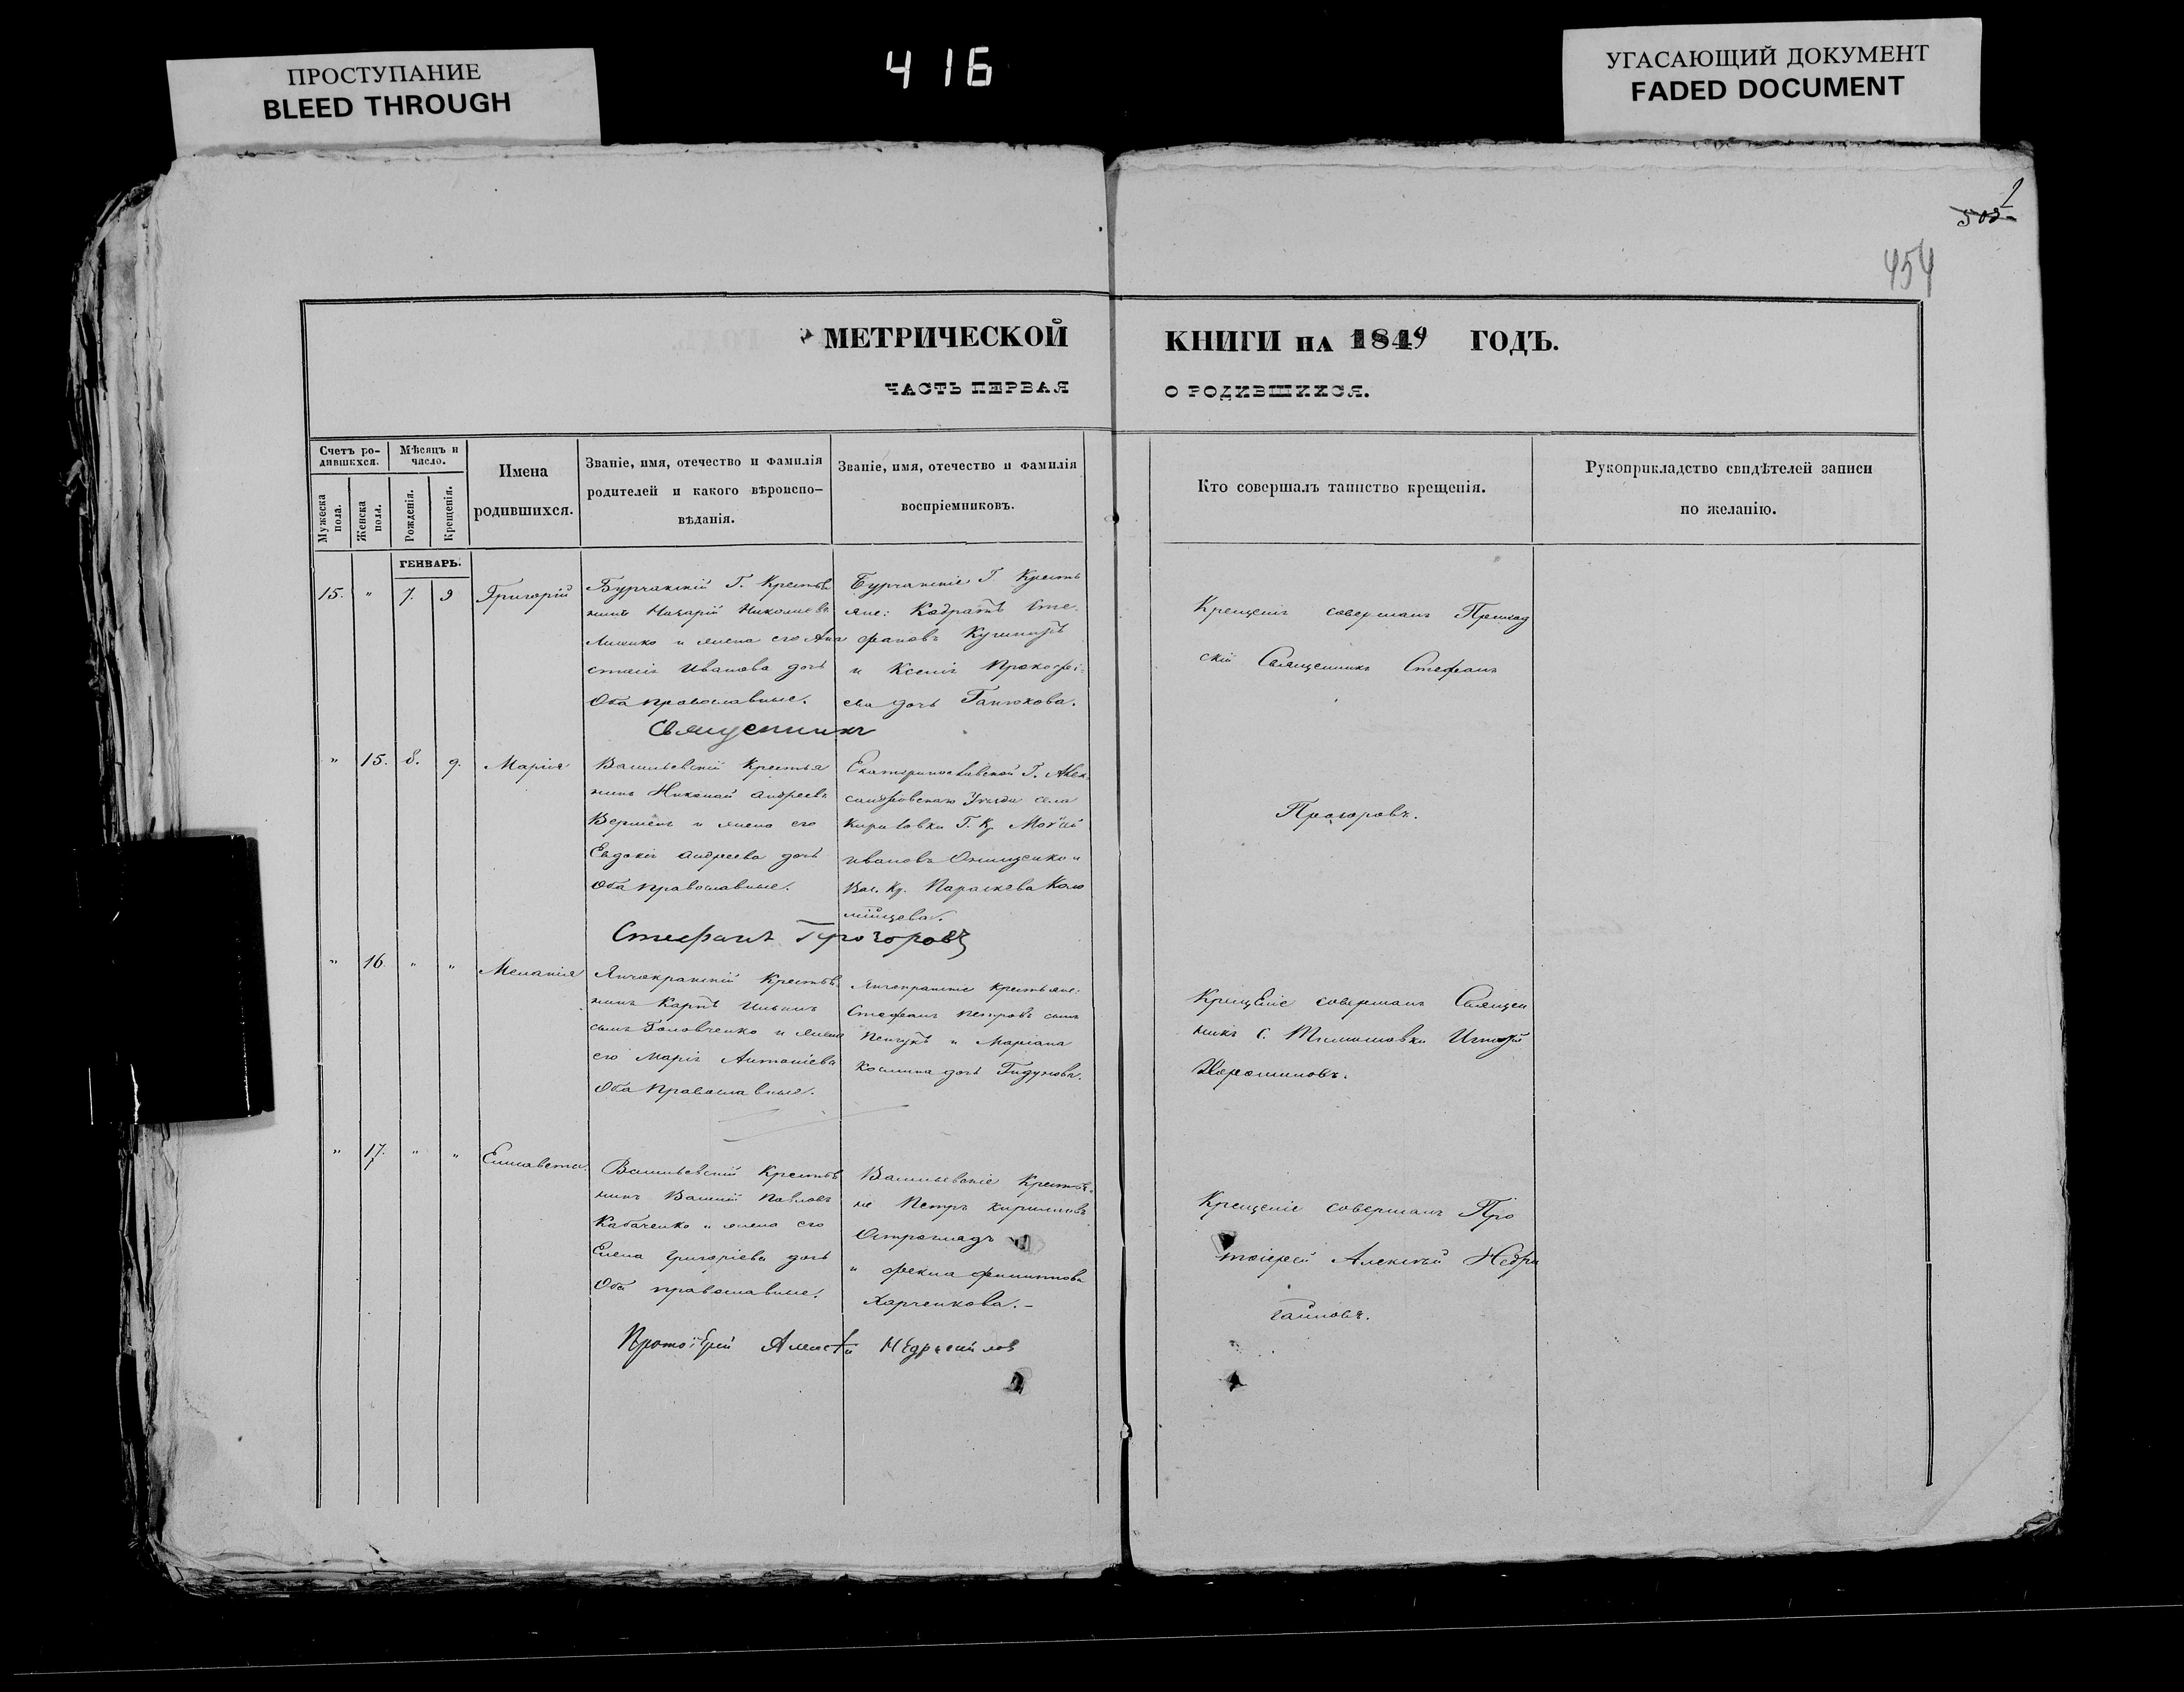 ПРОСТУПАНИЕ
BLEED THROUGH
416
УГАСАЮЩИЙ ДОКУМЕНТ
FADED DOCUMENT
454
МЕТРИЧЕСКОЙ КНИГИ НА 1849 ГОДЪ.
ЧАСТЬ ПЕРВАЯ О РОДИВШИХСЯ.
Счетъ ро-
дившихся.
Мѣсяцъ и
число.
Мужеска
пола.
Женска
пола.
Рожденія.
Крещенія.
Имена
родившихся.
Званіе, имя, отечество и фамилія
родителей и какого вѣроиспо-
вѣданія.
Званіе, имя, отечество и фамилія
воспріемниковъ.
Кто совершалъ таинство крещенія.
Рукоприкладство свидѣтелей записи
по желанію.
ГЕНВАРЬ.
15. " 7. 9 Григорій
Бурчакскій Г. Крестья
нинъ Назарій Николаевъ
и жена его Ана
стасія Иванова дочь
Оба православные.
Бурчакскіе Г. Кресть
яне: Кодратъ Сте-
фановъ
и Ксенія Прокофі-
ева дочь Ганюкова.
Крещеніе совершалъ Приход
скій Священникъ Стефанъ
Прогоровъ.
Священникъ
" 15. 8. 9. Марія
Васильевскій Крестья
нинъ Николай Андреевъ
и жена его
Евдокія Андреева дочь
Оба православные.
Екатеринославской Г. Алек
сандровскаго Уѣзда села
Г. Кр.
Ивановъ Онищенко и
Вас. Кр. Параскева Коло
мійцева.
Стефанъ Прогоровъ
" 16. " " Меланія
Янчекракскій Крестья
нинъ Карпъ Ильинъ
сынъ Головченко и жена
его Марія Антоніева
Оба Православные.
Янчекракскіе Крестьяне:
Стефанъ Петровъ сынъ
и Маріана
Косьмина дочь
Крещеніе совершалъ Священ
никъ с. Тимошовки
" 17. " " Елисавета.
Васильевскій Крестья
нинъ Василій Павловъ
Кабаченко и жена его
Елена Григоріева дочь
Оба православные.
Васильевскіе Крестья-
не Петръ Кириловъ
Остроглядъ
и Фекла Филиппова
Харченкова.-
Крещеніе совершалъ Про
тоіерей Алексѣй Недри
гайловъ.
Протоіерей Алексѣй Недригайловъ